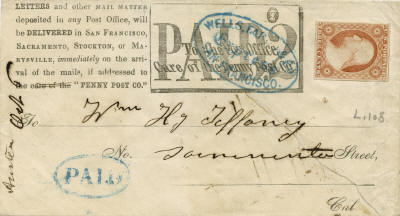 LETTERS and other MAIL MATTER
deposited in any Post Office, will
be DELIVERED in SAN FRANCISCO,
SACRAMENTO, STOCKTON, or MA-
RYSVILLE, immediately on the arri-
val of the mails, if addressed to
the care of the "PENNY POST CO."
PAID
To the Post Office,
Care of the Penny Post Co.
WELLS, FARGO
SAN FRANCISCO.
L.1108
To Wm Hy Tiffaney
No. Sacramento Street,
PAID
Cal.